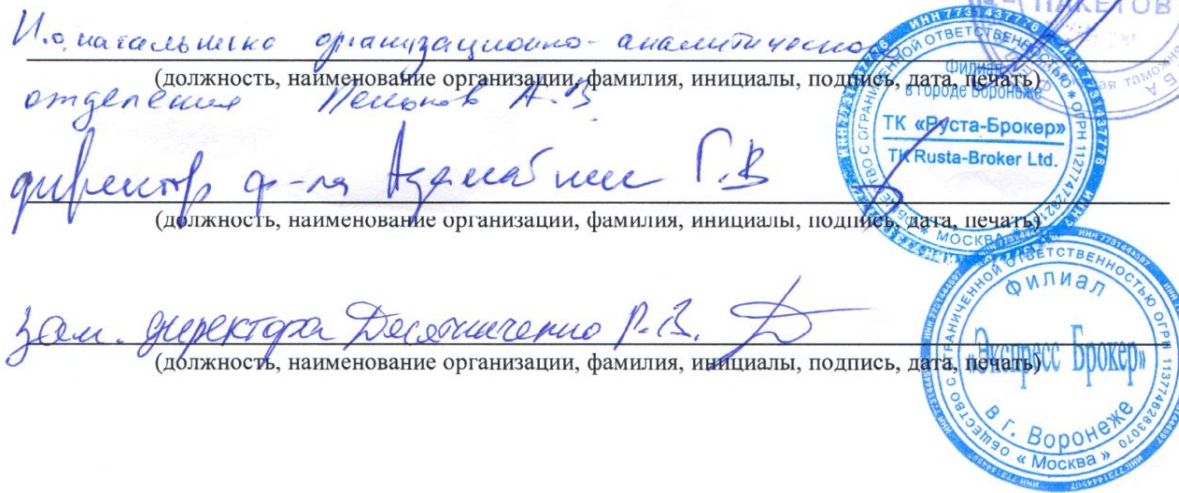 И.о. начальника организационно-аналитического
(должность, наименование организации, фамилия, инициалы, подпись, дата, печать)
отделения А.В
директор ф-ла Г.В
(должность, наименование организации, фамилия, инициалы, подпись, дата, печать)
зам. директора Десятниченко Р.В.
(должность, наименование организации, фамилия, инициалы, подпись, дата, печать)
ПАКЕТОВ
ИНН 7731437776
Филиал
в городе Воронеже
ТК «Руста-Брокер»
TK Rusta-Broker Ltd.
МОСКВА
ОБЩЕСТВО С ОГРАНИЧЕННОЙ ОТВЕТСТВЕННОСТЬЮ ОГРН 1137746283070
Филиал
«Экспресс Брокер»
в г. Воронеже
« Москва »